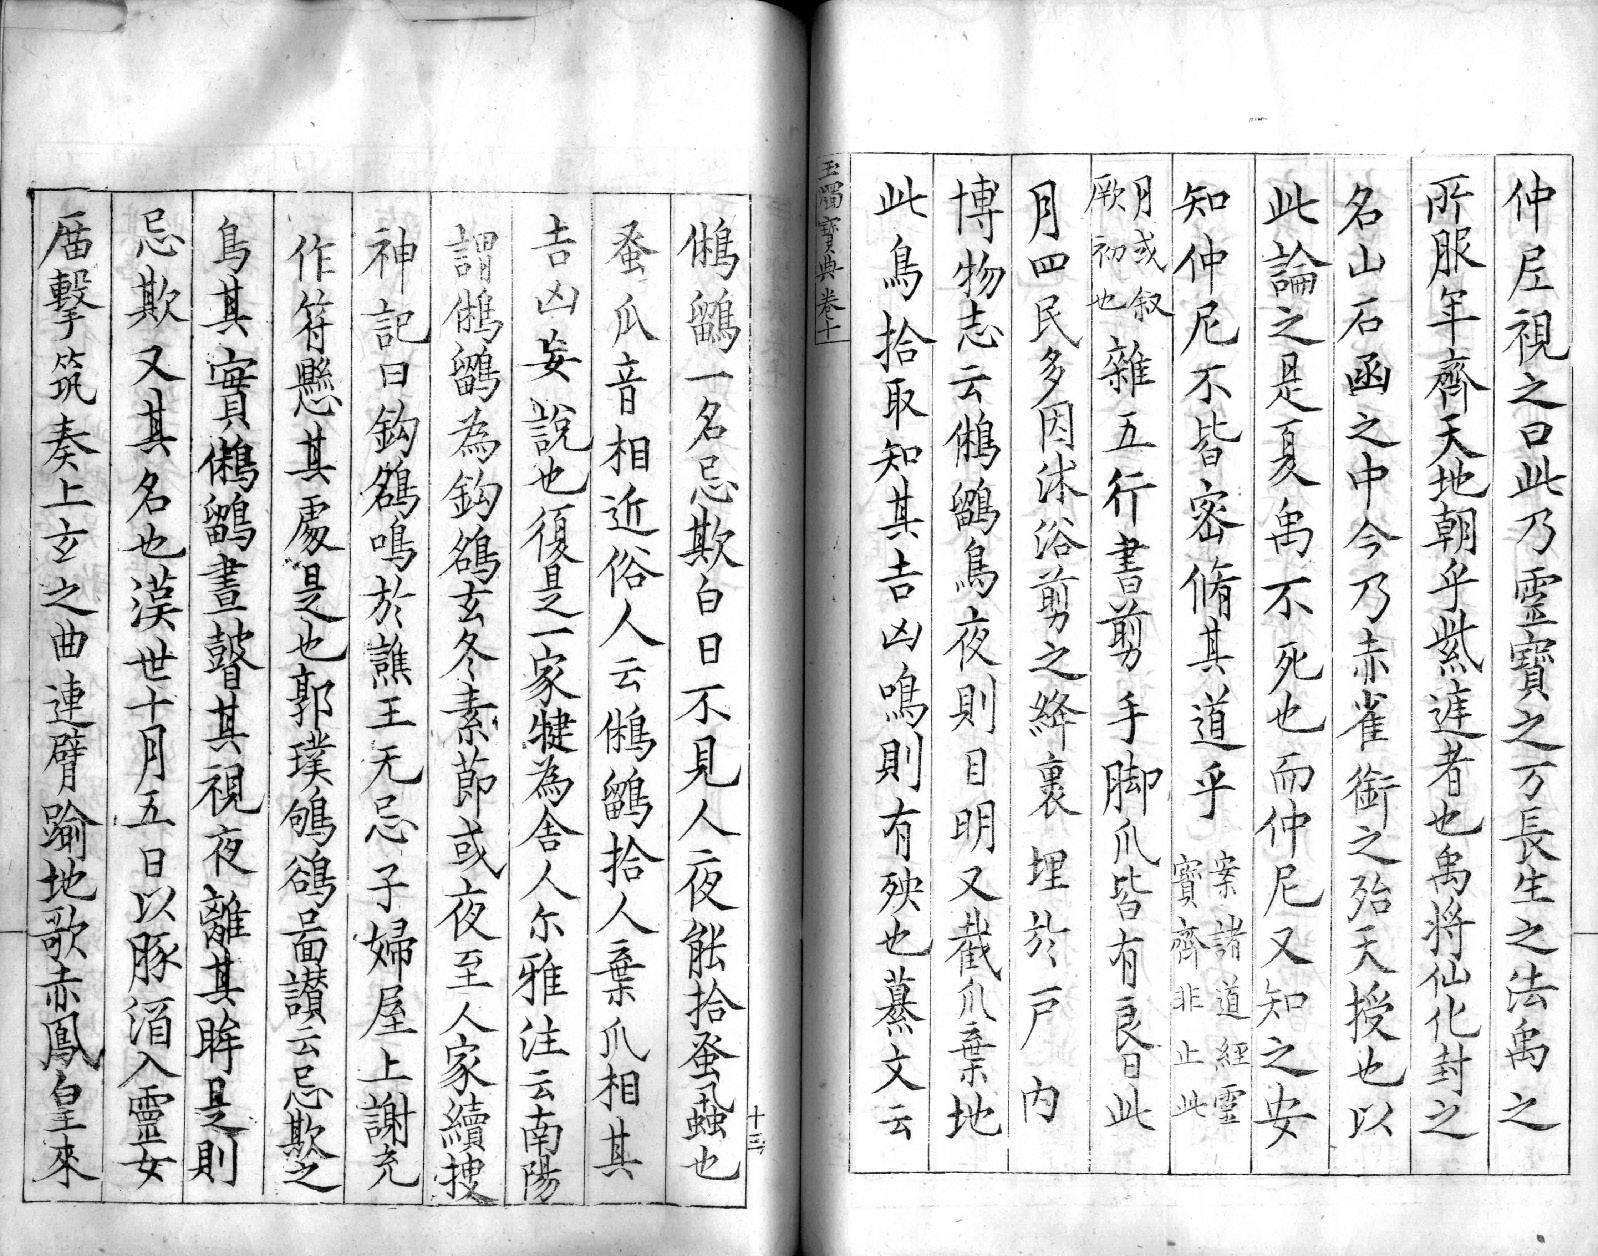 仲尼視之曰此乃靈寶之方長生之法禹之
所服年齊天地朝乎紫逹者也禹將仙化封之
名山石函之中今乃赤雀銜之殆天授也以
此論之是夏禹不死也而仲尼又知之安
知仲尼不皆密脩其道乎案諸道經靈寶齊非止此
月或叙厥初也雜五行書剪手脚爪皆有良日此
月四民多因沐浴剪之絳裏埋於戸内
博物志云鵂鶹鳥夜則目明又截爪棄地
此鳥拾取知其吉凶鳴則有殃也纂文云
玉燭寶典卷十
十三
鵂鶹一名忌欺白日不見人夜能拾蚤虱也
蚤爪音相近俗人云鵂鶹拾人棄爪相其
吉凶妄說也復是一家犍為舍人尔雅注云南陽
謂鵂鶹為鈎鵅玄冬素節或夜至人家續搜
神記曰鈎鵅鳴於譙王无忌子婦屋上謝充
作符懸其處是也郭璞鴝鵅啚讃云忌欺之
鳥其實鵂鶹晝瞽其視夜離其眸是則
忌欺又其名也漢世十月五日以豚酒入靈女
庿擊筑奏上玄之曲連臂踰地歌赤鳳皇來